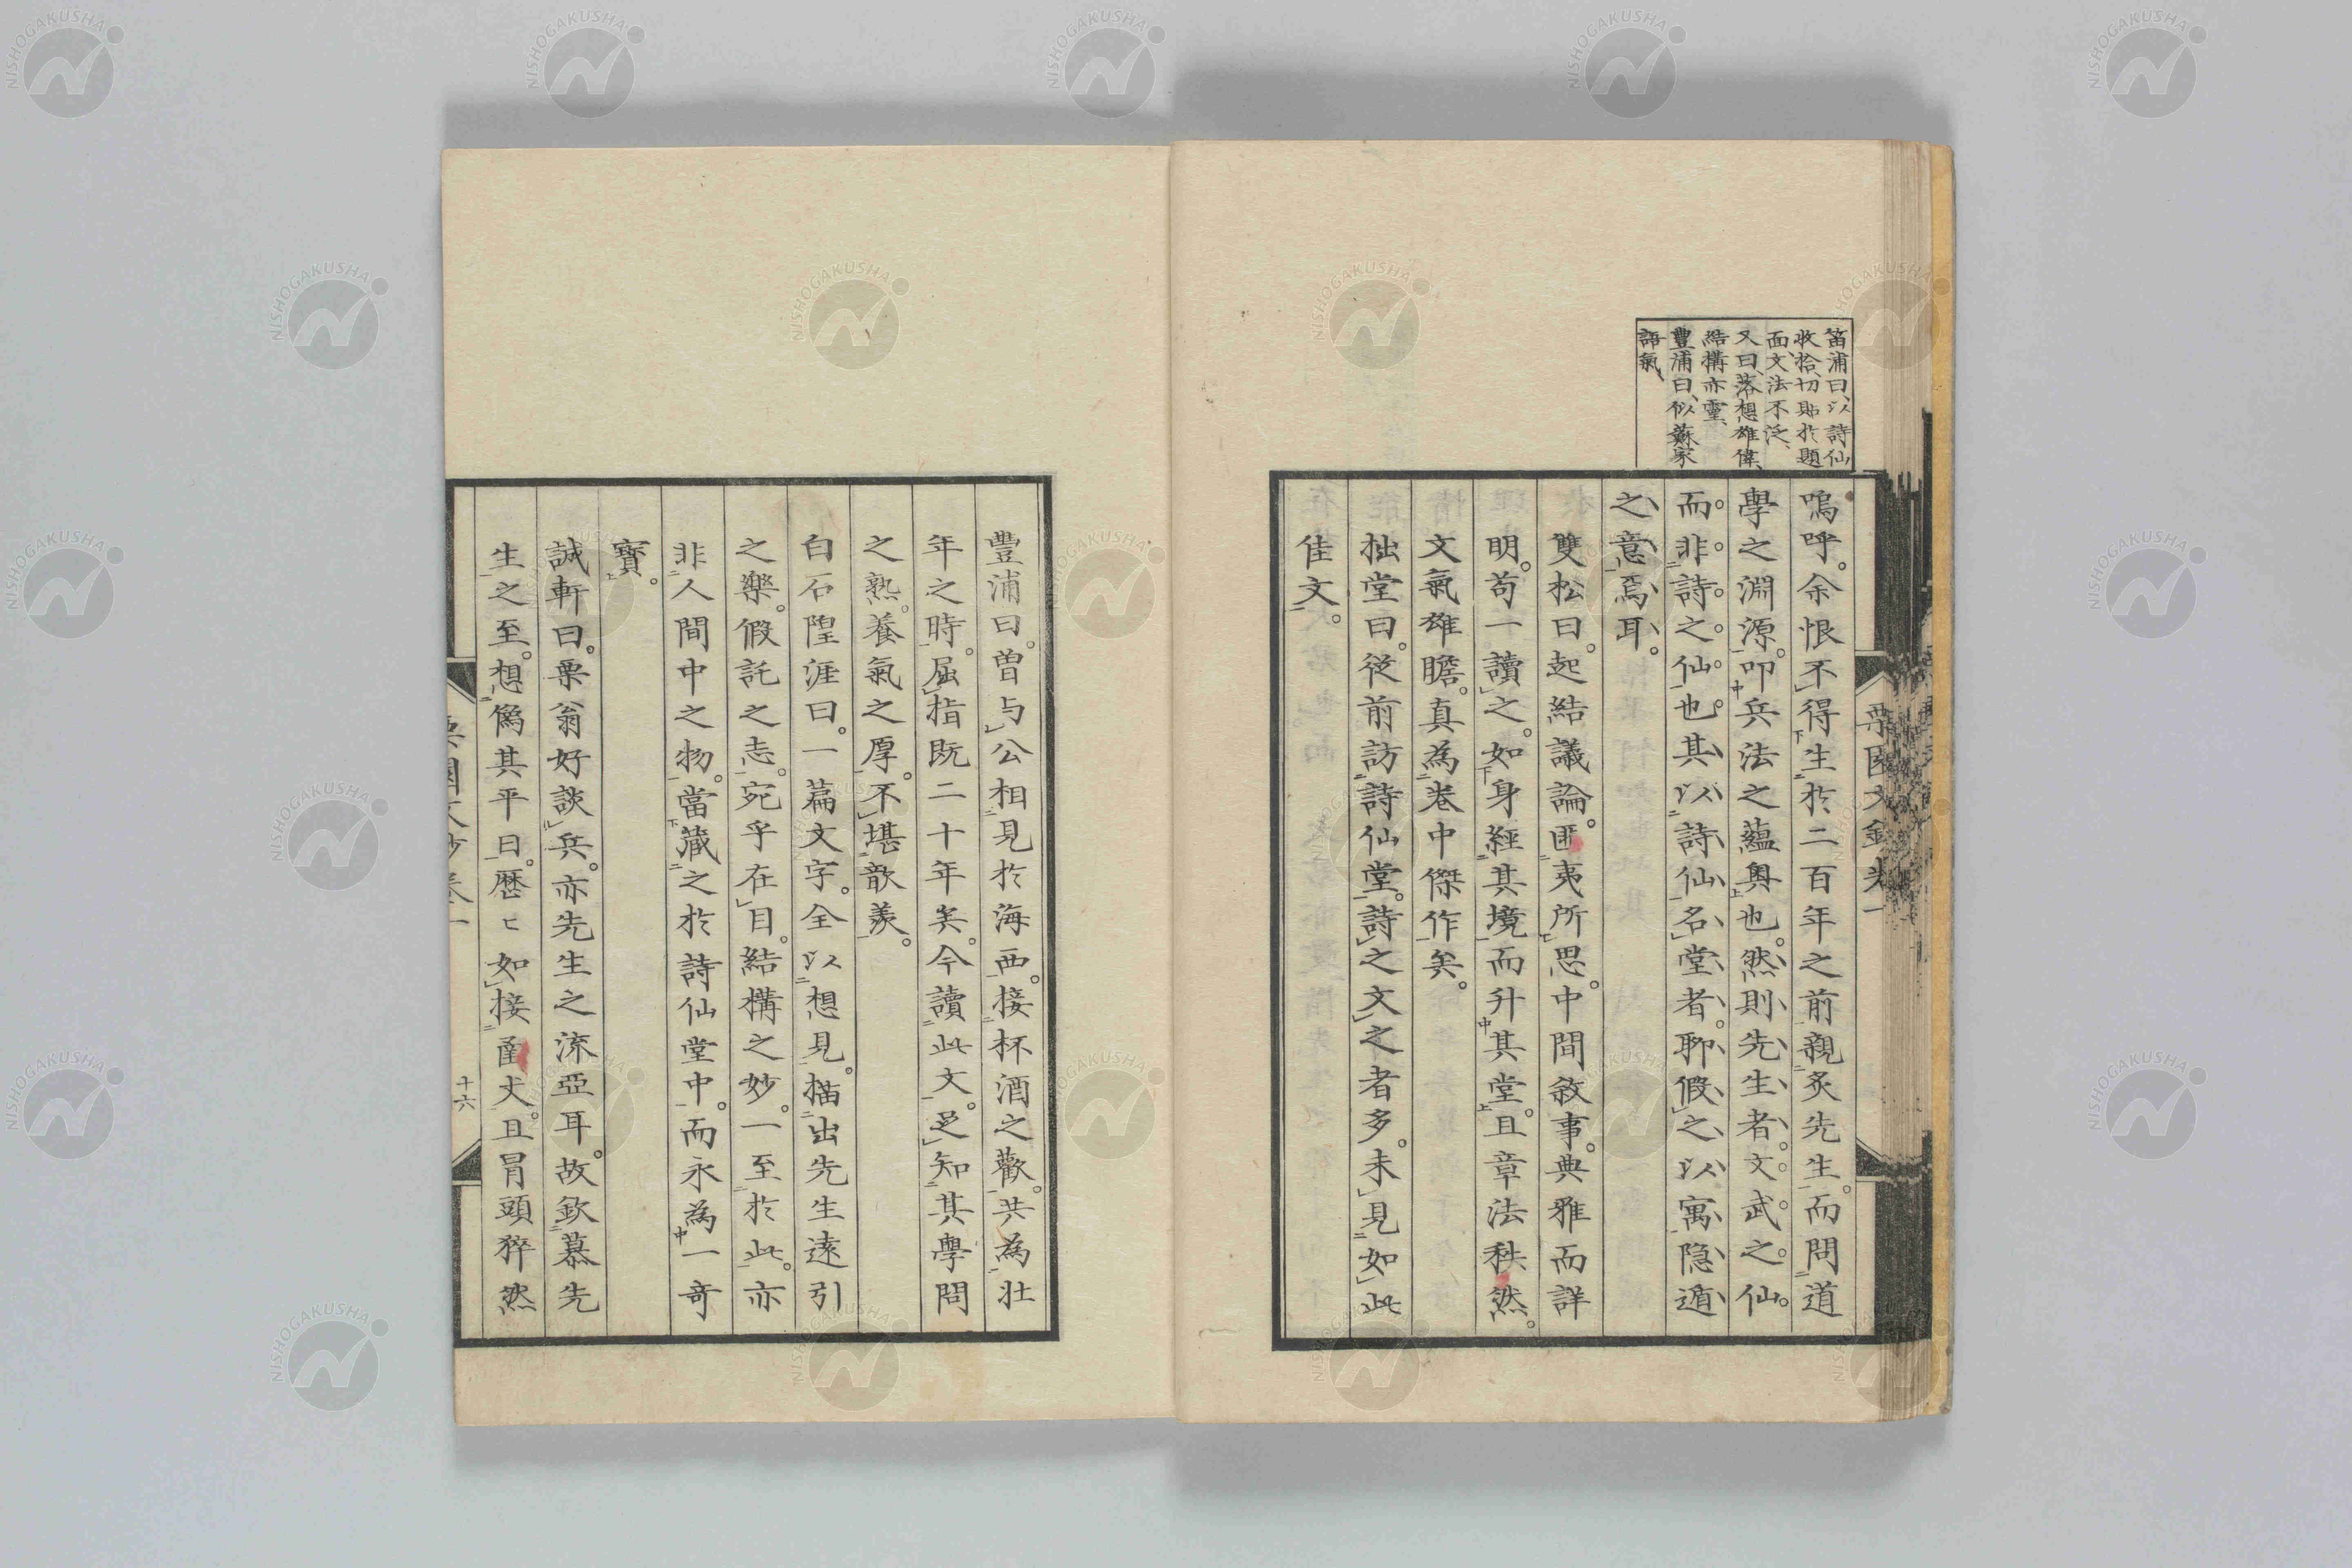 笛浦曰、以詩仙
收拾、切貼於題
面、文法不泛、
又曰、落想雄偉、
結構亦靈、
豊浦曰、似蘇家
語氣、
嗚呼。余恨不得生於二百年之前親炙先生。而問道
學之淵源。叩兵法之蘊奧也。然則先生者。文武之仙。
而非詩之仙也。其以詩仙名堂者。聊假之以寓隱遁
之意焉耳。
雙松曰。起結議論。匪夷所思。中間敘事。典雅而詳
明。苟一讀之。如身經其境而升其堂。且章法秩然。
文氣雄贍。真為卷中傑作矣。
拙堂曰。從前訪詩仙堂。詩之文之者多。未見如此
佳文。
豐浦曰。曽与公相見於海西。接杯酒之歡。共為壯
年之時。屈指既二十年矣。今讀此文。足知其學問
之熟。養氣之厚。不堪歆羨。
白石隍涯曰。一篇文字。全以想見。描出先生遠引
之樂。假託之志。宛乎在目。結構之妙。一至於此。亦
非人間中之物。當藏之於詩仙堂中。而永為一奇
寶。
誠軒曰。栗翁好談兵。亦先生之流亞耳。故欽慕先
生之至。想像其平日。歷々如接丈。且冒頭猝然
十六
NISHOGAKUSHA